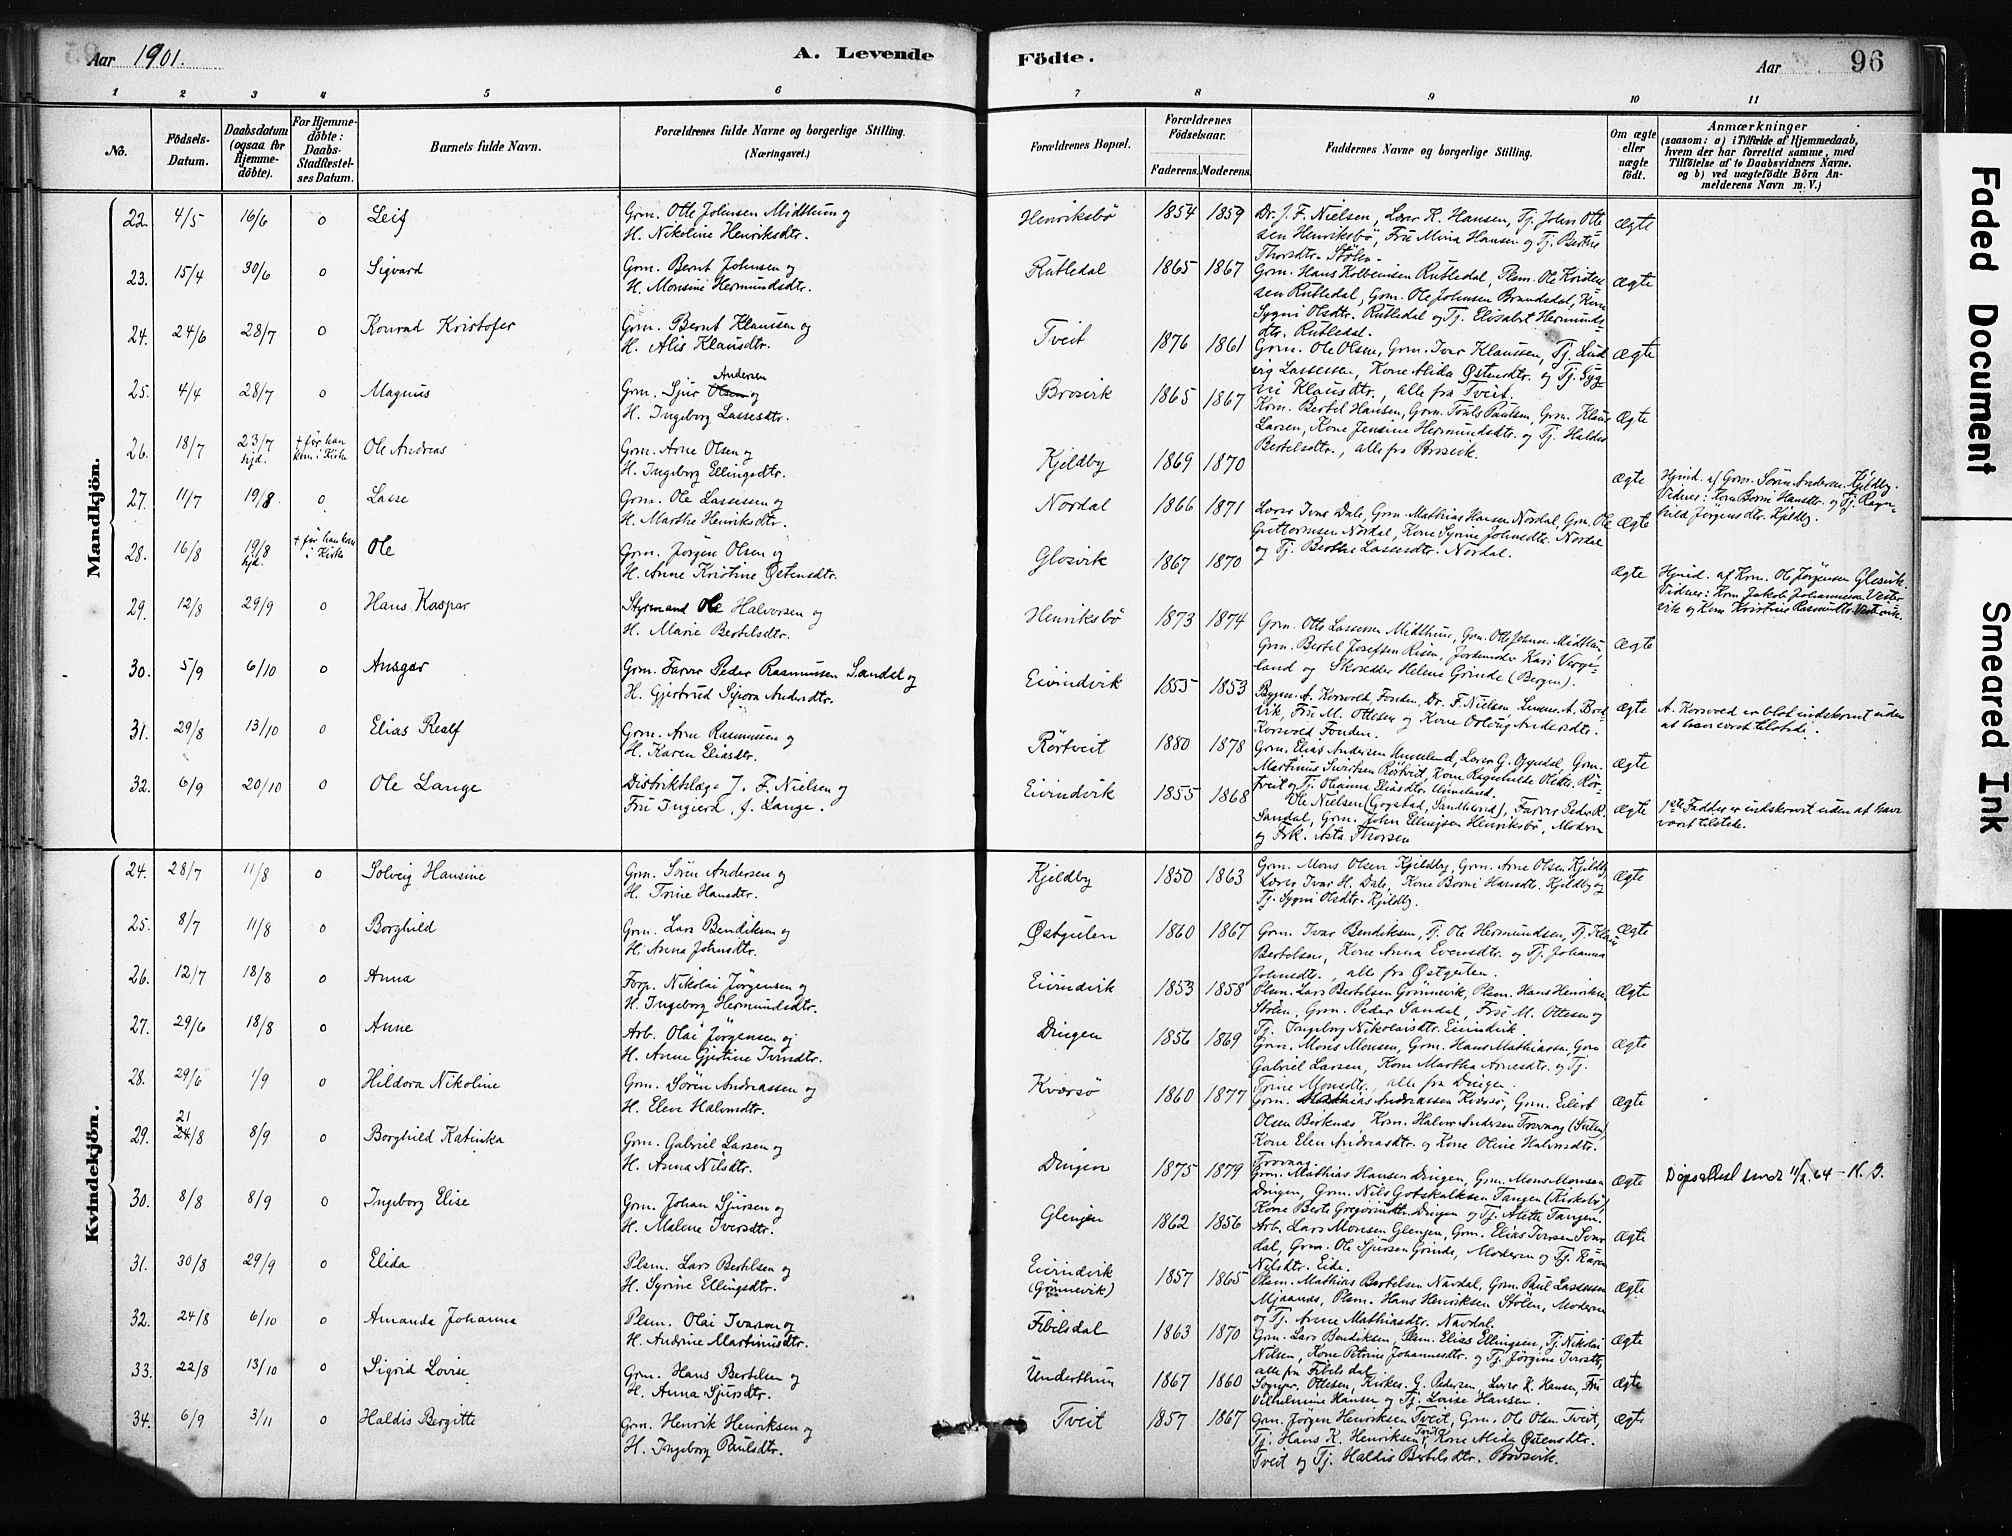 Aar 1901.
A. Levende Födte.
Aar
96
1 2 3 4 5 6 7 8 9 10 11
No.
Födsels-Datum.
Daabsdatum (ogsaa for Hjemme-döbte).
For Hjemme-döbte: Daabs-Stadfestel-ses Datum.
Barnets fulde Navn.
Forældrenes fulde Navne og borgerlige Stilling.
(Næringsvei.)
Forældrenes Bopæl.
Forældrenes Födselsaar.
Faderens. Moderens.
Faddernes Navne og borgerlige Stilling.
Om ægte eller uægte födt.
Anmærkninger
(saasom: a) i Tilfælde af Hjemmedaab, hvem der har forrettet samme, med Tilföielse af to Daabsvidners Navne. og b) ved uægtefödte Börn An-melderens Navn m. V.)
Mandkjön.
22. 4/5 16/6 0 Leif Grm. Otte Johnsen Midthun og
H. Nikoline Henriksdtr.
Henriksbö 1854 1859 Dr. J. F. Nielsen, Lærer K. Hansen, Tj. John Otte
sen Henriksbö, Fru Mina Hansen og Tj. Bertus
Thorsdtr. Stölen. Ægte
23. 15/4 30/6 0 Sigvard Grm. Bernt Johnsen og
H. Monsine Hermundsdtr.
Rutledal 1865 1867 Grm. Hans Kolbeinsen Rutledal, Plsm. Ole Kristen
sen Rutledal, Grm. Ole Johnsen Brandsdal,
Sygni Olsdtr. Rutledal og Tj. Elisabet Hermunds-
dtr. Rutledal. Ægte
24. 24/6 28/7 0 Konrad Kristofer Grm. Bernt Klaussen og
H. Alis Klausdtr.
Tveit 1876 1861 Grm. Ole Olsen, Grm. Ivar Klaussen, Tj. Lud
vig Lassesen, Kone Alida Østensdtr. og Tj. Syg
ni Klausdtr., alle fra Tveit. Ægte
25. 4/4 28/7 0 Magnus Grm. Sjur Olsen Andersen og
H. Ingeborg Lassesdtr.
Brosvik 1865 1867 Krm. Bertel Hansen, Grm. Pouls Paulsen, Grm. Klaus
Larsen, Kone Jensine Hermundsdtr. og Tj. Haldis
Bertelsdtr., alle fra Brosvik. Ægte
26. 18/7 23/7 hjd. + för han kom i Kirke Ole Andreas Grm. Arne Olsen og
H. Ingeborg Ellingsdtr.
Kjeldby 1869 1870 Ægte Hjmd. af Grm. Sören Andersen Kjeldby.
Vidner: Kone Borni Hansdtr. og Tj. Ragn-
hild Jörgensdtr. Kjeldby.
27. 11/7 19/8 0 Lasse Grm. Ole Lassesen og
H. Marthe Henriksdtr.
Nordal 1866 1871 Lærer Ivar Dale, Grm. Mathias Hansen Nordal, Grm. Ole
Guttormsen Nordal, Kone Syrine Johnsdtr. Nordal
og Tj. Berthe Lassesdtr. Nordal. Ægte
28. 16/8 19/8 hjd. + för han kom i Kirke Ole Grm. Jörgen Olsen og
H. Anne Kristine Østensdtr.
Glosvik 1867 1870 Ægte Hjmd. af Krm. Ole Jörgensen Glosvik.
Vidner: Krm. Jakob Johannesen Vester
vik og Kone Kristine Rasmusdtr. Vestervik.
29. 12/8 29/9 0 Hans Kaspar Styrmand Ole Halvorsen og
H. Marie Bertelsdtr.
Henriksbö 1873 1874 Grm. Otto Lassesen Midthun, Grm. Otte Johnsen Midthun,
Grm. Bertel Josefsen Risen, Jordemoder Kari Verge-
land og Skrædder Helene Grinde (Bergen). Ægte
30. 5/9 6/10 0 Ansgar Grm. Farver Peder Rasmussen Sandal og
H. Gjertrud Sjvora Andersdtr.
Eivindvik 1855 1853 Bygm. A. Korsvold, Fonden, Dr. F. Nielsen, Lensm. A. Bred-
vik, Fru M. Ottesen og Kone Oolvug Andersdtr.
Korsvold Fonden. Ægte A. Korsvold er blot indskrevet uden
at have været tilstede.
31. 29/8 13/10 0 Elias Realf Grm. Arne Rasmussen og
H. Karen Eliasdtr.
Rörtveit 1880 1878 Grm. Elias Andersen Unneland, Lærer G. Opedal, Grm.
Martinus Sivertsen Rörtveit, Kone Ragnhilde Olsdtr. Rör-
tveit og Tj. Olianna Eliasdtr. Unneland. Ægte
32. 6/9 20/10 0 Ole Lange Distriktslæge J. F. Nielsen og
Fru Ingierd, f. Lange.
Eivindvik 1855 1868 Ole Nielsen (Gogstad, Sandherred), Farver Peder R.
Sandal, Grm. John Ellingsen Henriksbö, Moderen
og Frk. Asta Thorsen Ægte 1ste Fadder er indskrevet uden at have
været tilstede.
Kvindekjön.
24. 28/7 11/8 0 Solveig Hansine Grm. Sören Andersen og
H. Trine Hansdtr.
Kjeldby 1850 1863 Grm. Mons Olsen Kjeldby, Grm. Arne Olsen Kjeldby
Lærer Ivar H. Dale, Kone Borni Hansdtr. Kjeldby og
Tj. Sygni Olsdtr. Kjeldby. Ægte
25. 8/7 11/8 0 Borghild Grm. Lars Bendiksen og
H. Anna Johnsdtr.
Østgulen 1860 1867 Grm. Ivar Bendiksen, Tj. Ole Hermundsen, Tj. Klaus
Bertelsen, Kone Anna Evensdtr. og Tj. Johanna
Johnsdtr., alle fra Østgulen. Ægte
26. 12/7 18/8 0 Anna Forp. Nikolai Jörgensen og
H. Ingeborg Hermundsdtr.
Eivindvik 1853 1858 Plsm. Lars Bertelsen Grönnevik, Plsm. Hans Henriksen
Stölen, Grm. Peder Sandal, Fru M. Ottesen og
Tj. Ingeborg Nikolaisdtr. Eivindvik. Ægte
27. 29/6 18/8 0 Anne Arb. Olai Jørgensen og
H. Anne Gjertine Iversdtr.
Dingen 1856 1869 Grm. Mons Monsen, Grm. Hans Mathiassen, Grm
Gabriel Larsen, Kone Martha Arnesdtr. og Tj.
Trine Monsdtr., alle fra Dingen. Ægte
28. 29/6 1/9 0 Hildora Nikoline Grm. Sören Andreassen og
H. Elen Halvorsdtr.
Kversö 1860 1877 Grm. Mathias Andreassen Kversö, Grm. Eilert
Olsen Birknes, Krm. Halvor Andersen Trovaag (Sulen),
Kone Elen Andreasdtr. og Kone Oline Halvorsdtr.
Trovaag. Ægte
29. 21 24/8 8/9 0 Borghild Katinka Grm. Gabriel Larsen og
H. Anna Nilsdtr.
Dingen 1875 1879 Grm. Mathias Hansen Dingen, Grm. Mons Monsen
Dingen, Grm. Nils Gotskalksen Tangen (Kirkebö),
Kone Berte Gregoriusdtr. Dingen og Tj. Alette Tangen. Ægte Dåpsattest sendt 11/2.64 - K. B.
30. 8/8 8/9 0 Ingeborg Elise Grm. Johan Sjursen og
H. Malene Iversdtr.
Glenjen 1862 1856 Arb. Lars Monsen Glenjen, Grm. Elias Iversen Svar
dal, Grm. Ole Sjursen Grinde, Moderen og Tj. Karen
Nilsdtr. Eide. Ægte
31. 30/8 29/9 0 Elida Plsm. Lars Bertelsen og
H. Syrine Ellingsdtr.
Eivindvik (Grönnevik) 1857 1865 Plsm. Mathias Bertelsen Navdal, Grm. Paul Lassesen
Mjaanes, Plsm. Hans Henriksen Stölen, Moderen
og Tj. Anne Mathiasdtr. Navdal. Ægte
32. 24/8 6/10 0 Amanda Johanna Plsm. Olai Ivarson og
H. Andrine Martinusdtr.
Fibelsdal 1863 1870 Grm. Lars Bendiksen, Plsm. Elias Ellingsen, Tj. Nikolai
Nilsen, Kone Petrine Johannesdtr. og Tj. Jörgine Iversdtr,
alle fra Fibelsdal. Ægte
33. 22/8 13/10 0 Sigrid Lovise Grm. Hans Bertelsen og
H. Anna Sjursdtr.
Underthun 1867 1860 Sogнepr. Ottesen, Kirkes. G. Pedersen, Lærer K. Hansen, Fru
Vilhelmine Hansen og Tj. Louise Hansen. Ægte
34. 6/9 3/11 0 Haldis Bergitte Grm. Henrik Henriksen og
H. Ingeborg Paulsdtr.
Tveit 1857 1867 Grm. Jörgen Henriksen Tveit, Grm. Ole Olsen Tveit,
Tj. Hans K. Henriksen Tveit, Kone Alida Østensdtr.
Tveit og Tj. Haldis Bertelsdtr. Brosvik. Ægte
Faded Document
Smeared Ink